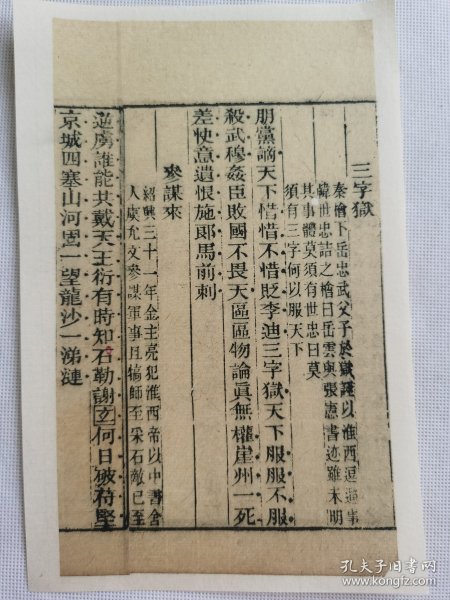 三字獄
秦檜下岳忠武父子於獄誣以淮西逗遛事
韓世忠詰之檜曰岳雲與張憲書迹雖未明
其事體莫須有世忠曰莫
須有三字何以服天下
朋黨謫天下惜惜不惜貶李迪三字獄天下服服不服
殺武穆姦臣敗國不畏天區區物論真無權崖州一死
差快意遺恨施郎馬前刺
參謀來
紹興三十一年金主亮犯淮西帝以中書舍
人虞允文參謀軍事且犒師至采石敵已至
逆虜誰能共戴天王衍有時知石勒謝玄何日破苻堅
京城四塞山河固一望龍沙一涕漣
孔夫子旧书网
www.kongfz.com